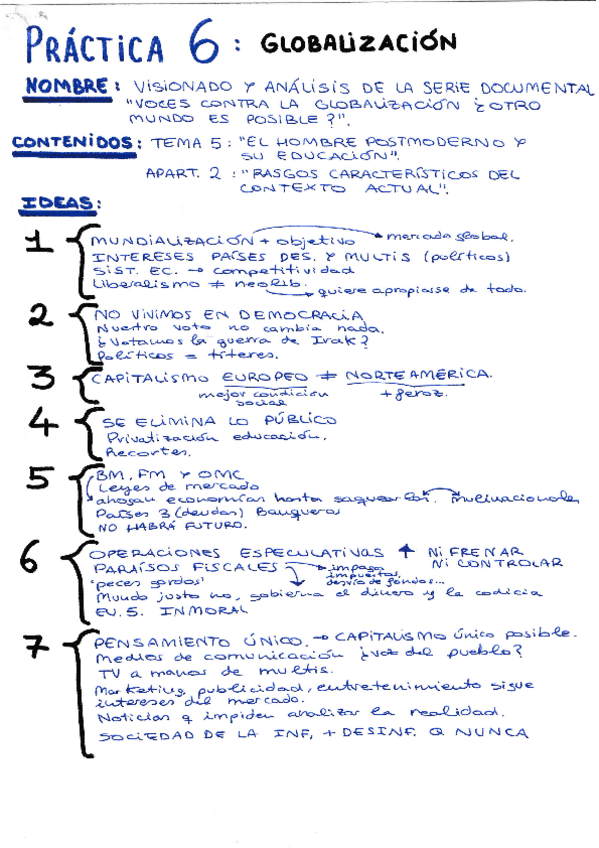 PRÁCTICA 6: GLOBALIZACIÓN
NOMBRE: VISIONADO Y ANÁLISIS DE LA SERIE DOCUMENTAL
"VOCES CONTRA LA GLOBALIZACIÓN ¿OTRO
MUNDO ES POSIBLE?".
CONTENIDOS: TEMA 5: "EL HOMBRE POSTMODERNO Y
SU EDUCACIÓN".
APART. 2: "RASGOS CARACTERÍSTICOS DEL
CONTEXTO ACTUAL".
IDEAS:
1 MUNDIALIZACIÓN + objetivo → mercado global.
INTERESES PAÍSES DES. Y MULTIS (políticos)
SIST. EC. → competitividad
Liberalismo ≠ neolib. → quiere apropiarse de todo.
2 NO VIVIMOS EN DEMOCRACIA
Nuestro voto no cambia nada.
¿Votamos la guerra de Irak?
Políticos = títeres.
3 CAPITALISMO EUROPEO ≠ NORTEAMÉRICA.
mejor condición social
+ feroz.
4 SE ELIMINA LO PÚBLICO
Privatización educación.
Recortes.
5 BM, FM Y OMC
Leyes de mercado
ahogan economías hasta saquear
Países 3 (deudas) Banqueros
NO HABRÁ FUTURO.
6 OPERACIONES ESPECULATIVAS ↑ NI FRENAR
NI CONTROLAR
PARAÍSOS FISCALES → impago impuestos, desvío de fondos...
'peces gordos'
Mundo justo no, gobierna el dinero y la codicia
EU.S. INMORAL
7 PENSAMIENTO ÚNICO. → CAPITALISMO único posible.
Medios de comunicación ¿voz del pueblo?
TV a manos de multis.
Marketing, publicidad, entretenimiento sigue
intereses del mercado.
Noticias q impiden analizar la realidad.
SOCIEDAD DE LA INF, + DESINF. Q NUNCA